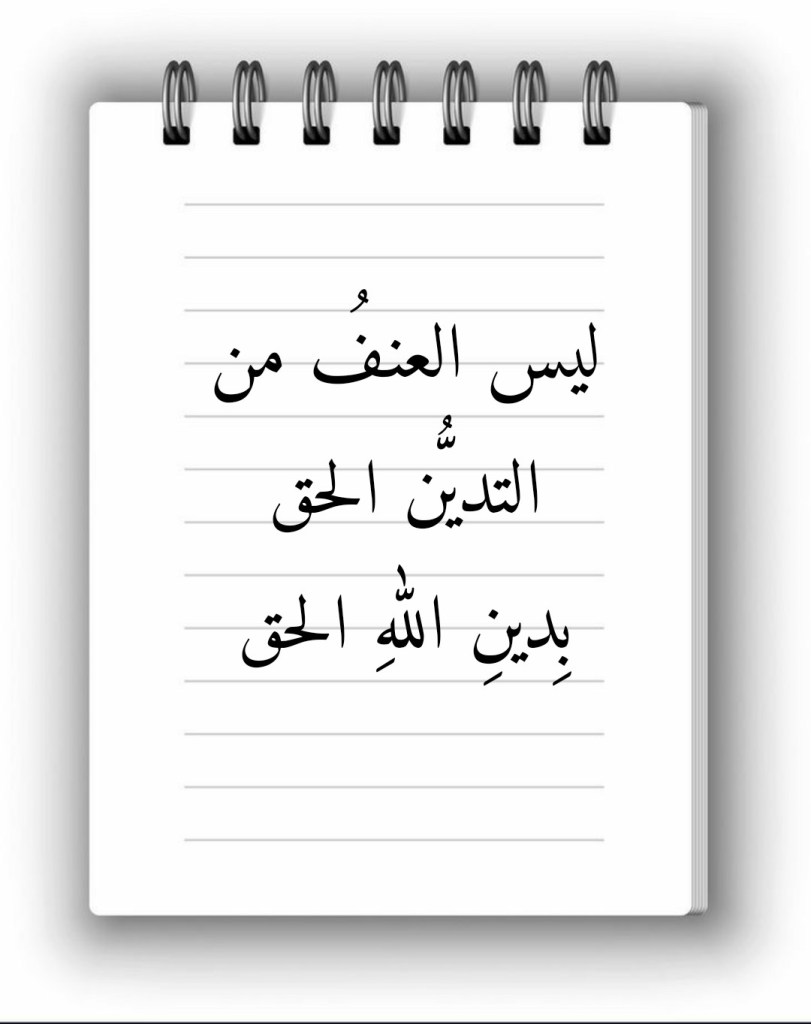 ليس العنفُ من
التديُّن الحق
بِدينِ اللهِ الحق